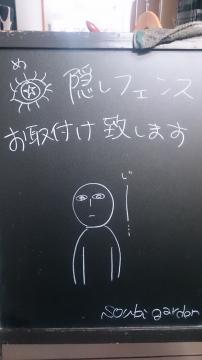 め隠しフェンス
お取付け致します
じー…
Soubi garden